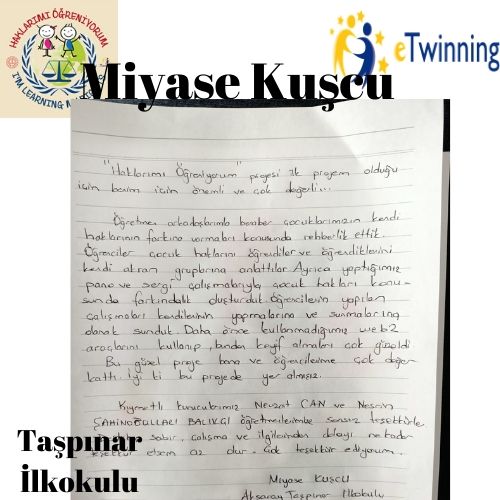 HAKLARIMI ÖĞRENİYORUM
I'M LEARNING MY
eTwinning
Miyase Kuşcu
"Haklarımı Öğreniyorum" projesi ilk projem olduğu
için benim için önemli ve çok değerli...
Öğretmen arkadaşlarımla beraber çocuklarımızın kendi
haklarının farkına varmaları konusunda rehberlik ettik.
Öğrenciler çocuk haklarını öğrendiler ve öğrendiklerini
kendi akran gruplarına anlattılar. Ayrıca yaptığımız
pano ve sergi çalışmalarıyla çocuk hakları konu-
sunda farkındalık oluşturduk. Öğrencilerin yapılan
çalışmaları kendilerinin yapmalarına ve sunmalarına
olanak sunduk. Daha önce kullanmadığımız web2
araçlarını kullanıp, bundan keyif almaları çok güzeldi
Bu güzel proje bana ve öğrencilerime çok değer
kattı. İyi ki bu projede yer almışız.
Kıymetli kurucularımız Nevzat CAN ve Nesrin
ŞAHİNOĞULLARI BALIKGI öğretmenlerimize sonsuz teşekkürler
sabır, çalışma ve ilgilerinden dolayı ne kadar
teşekkür etsem az olur. Çok teşekkür ediyorum.
Miyase KUŞCU
Aksaray Taşpınar İlkokulu
Taşpınar
İlkokulu